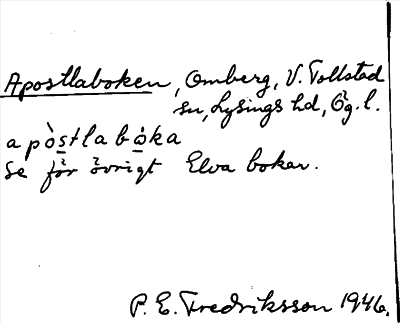 Apostlaboken, Omberg, V. Tollstad
sn, Lysings hd, Ög. l.
apòstlabòka
Se för övrigt Elva bokar.
P. E. Fredriksson 1946.